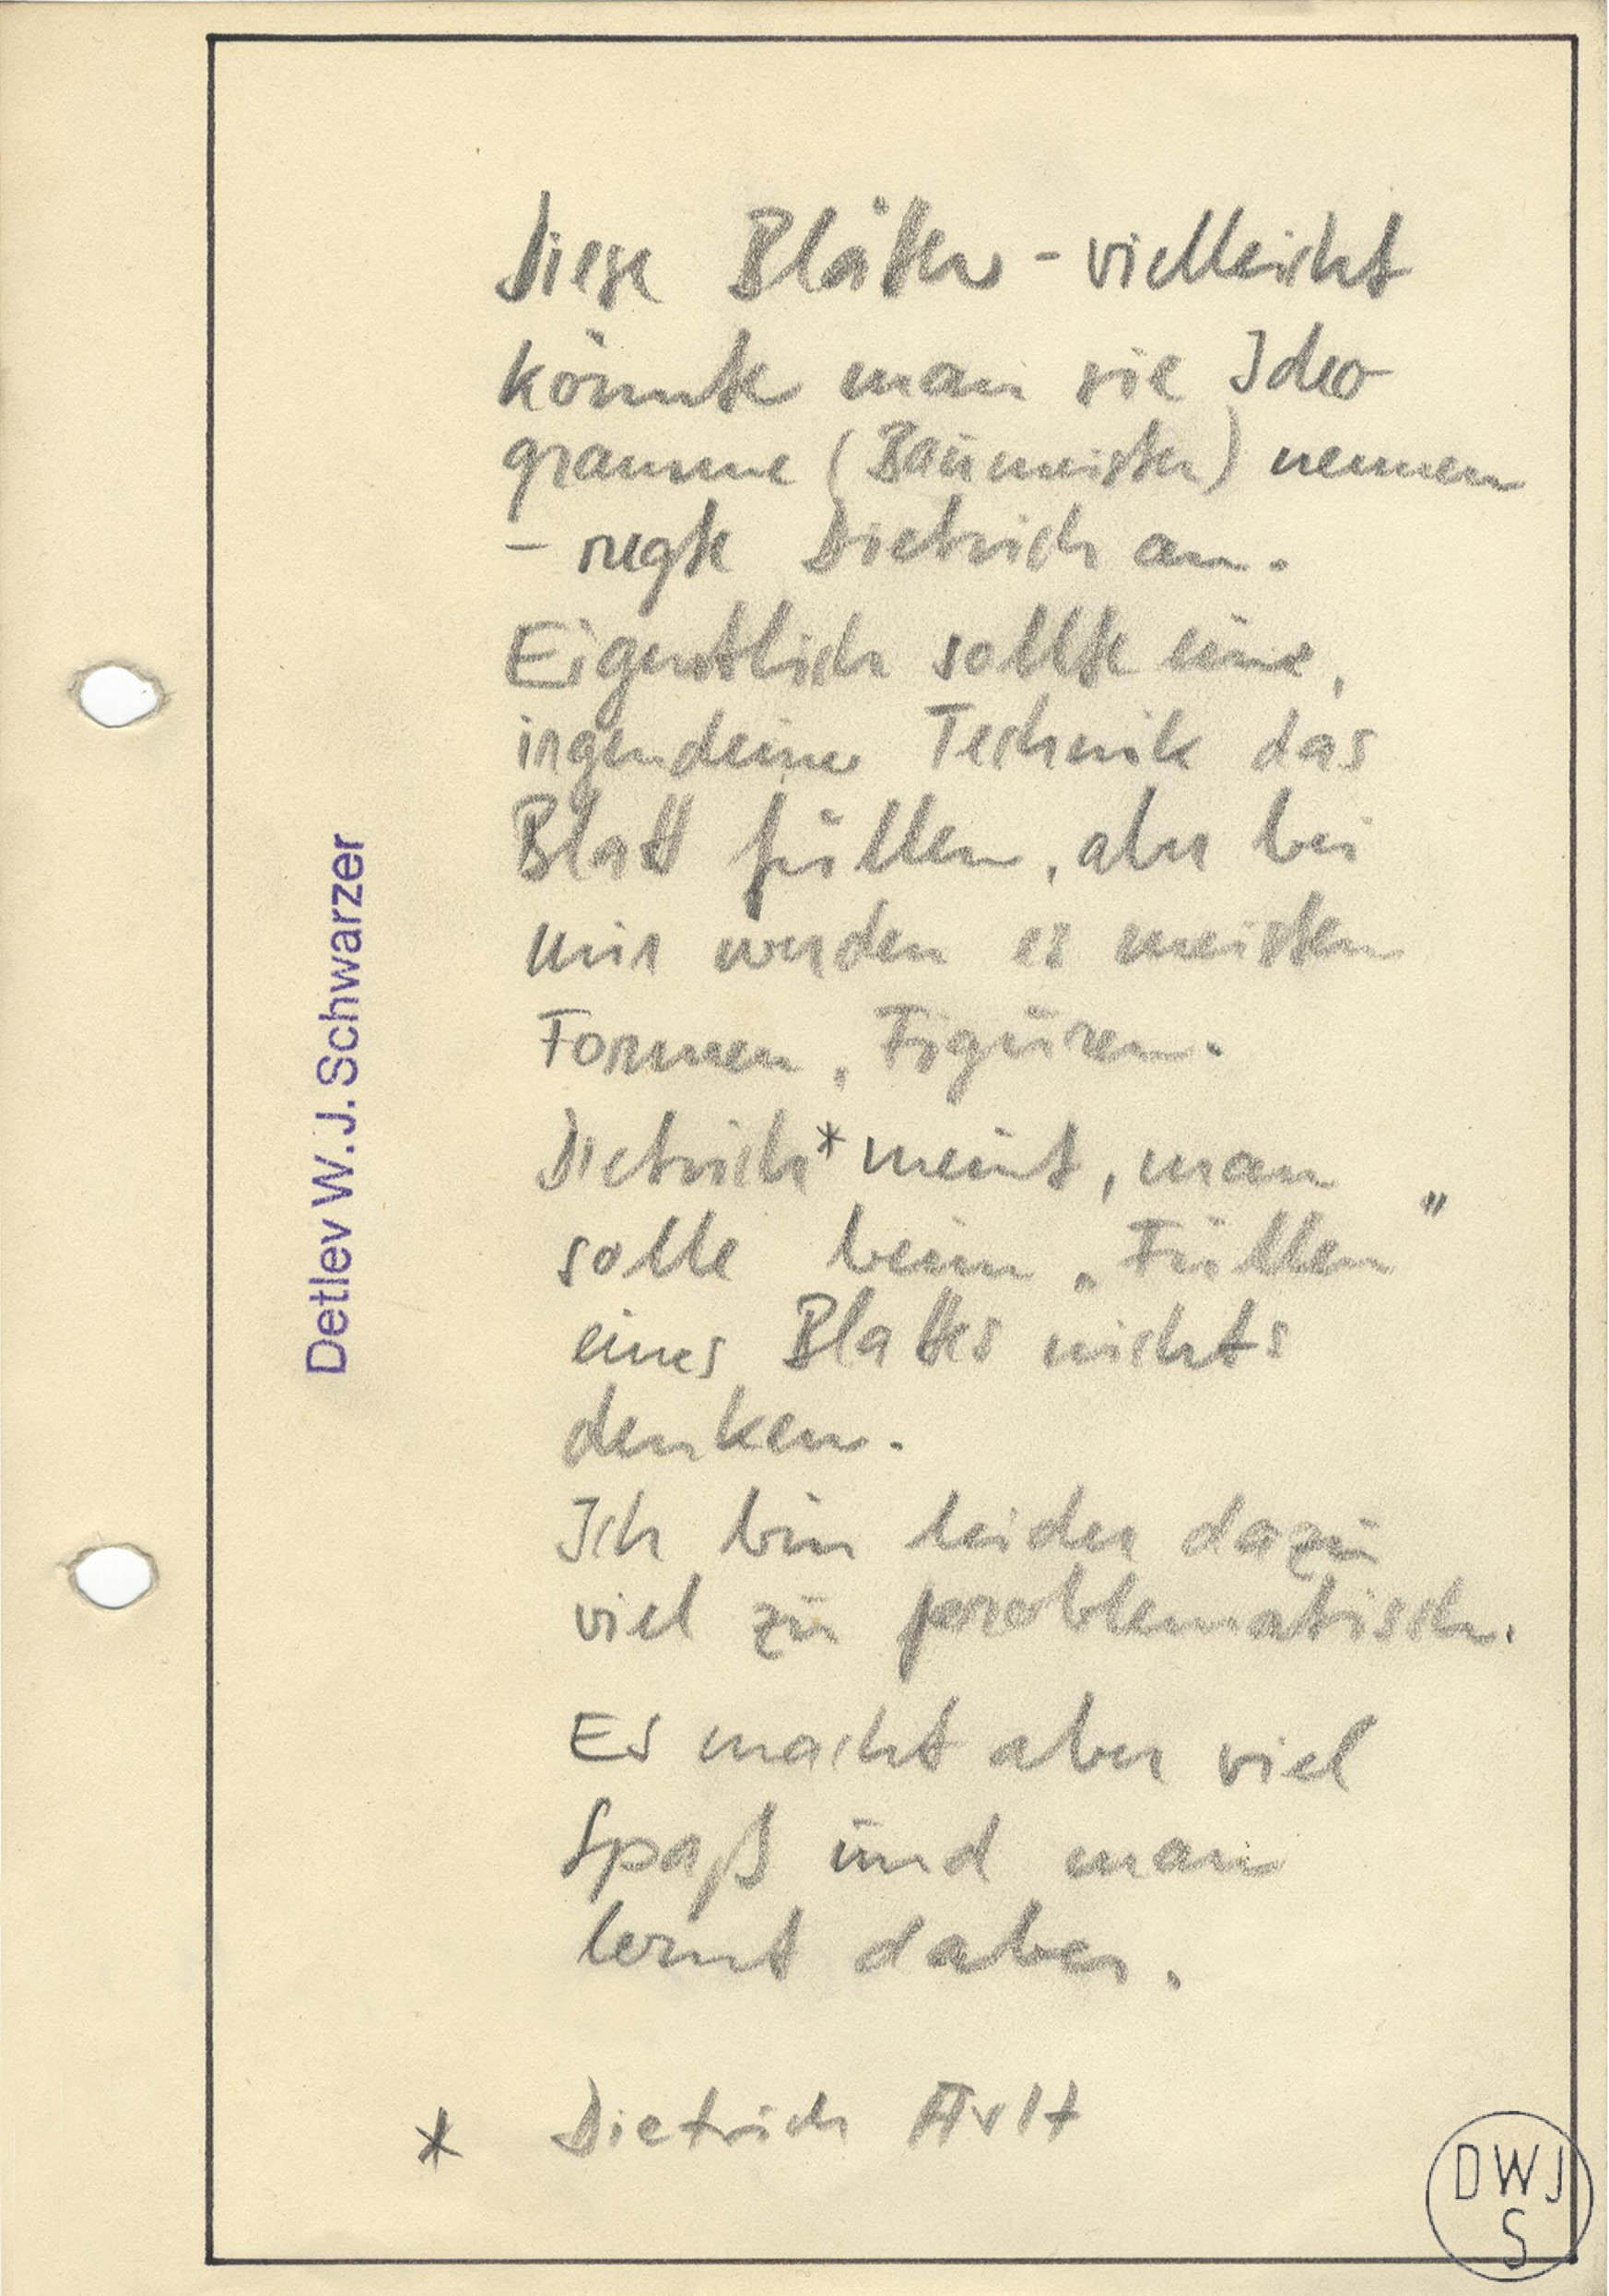 Diese Blätter - vielleicht
könnte man sie Ideo-
gramme (Baumeister) nennen
- regte Dietrich an.
Eigentlich sollte eine,
irgendeine Technik das
Blatt füllen, aber bei
mir werden es meisten
Formen, Figuren.
Dietrich* meint, man
solle beim „Füllen"
eines Blattes nichts
denken.
Ich bin leider dazu
viel zu problematisch.
Es macht aber viel
Spaß und man
lernt dabei.
* Dietrich
Detlev W. J. Schwarzer
DWJ
S